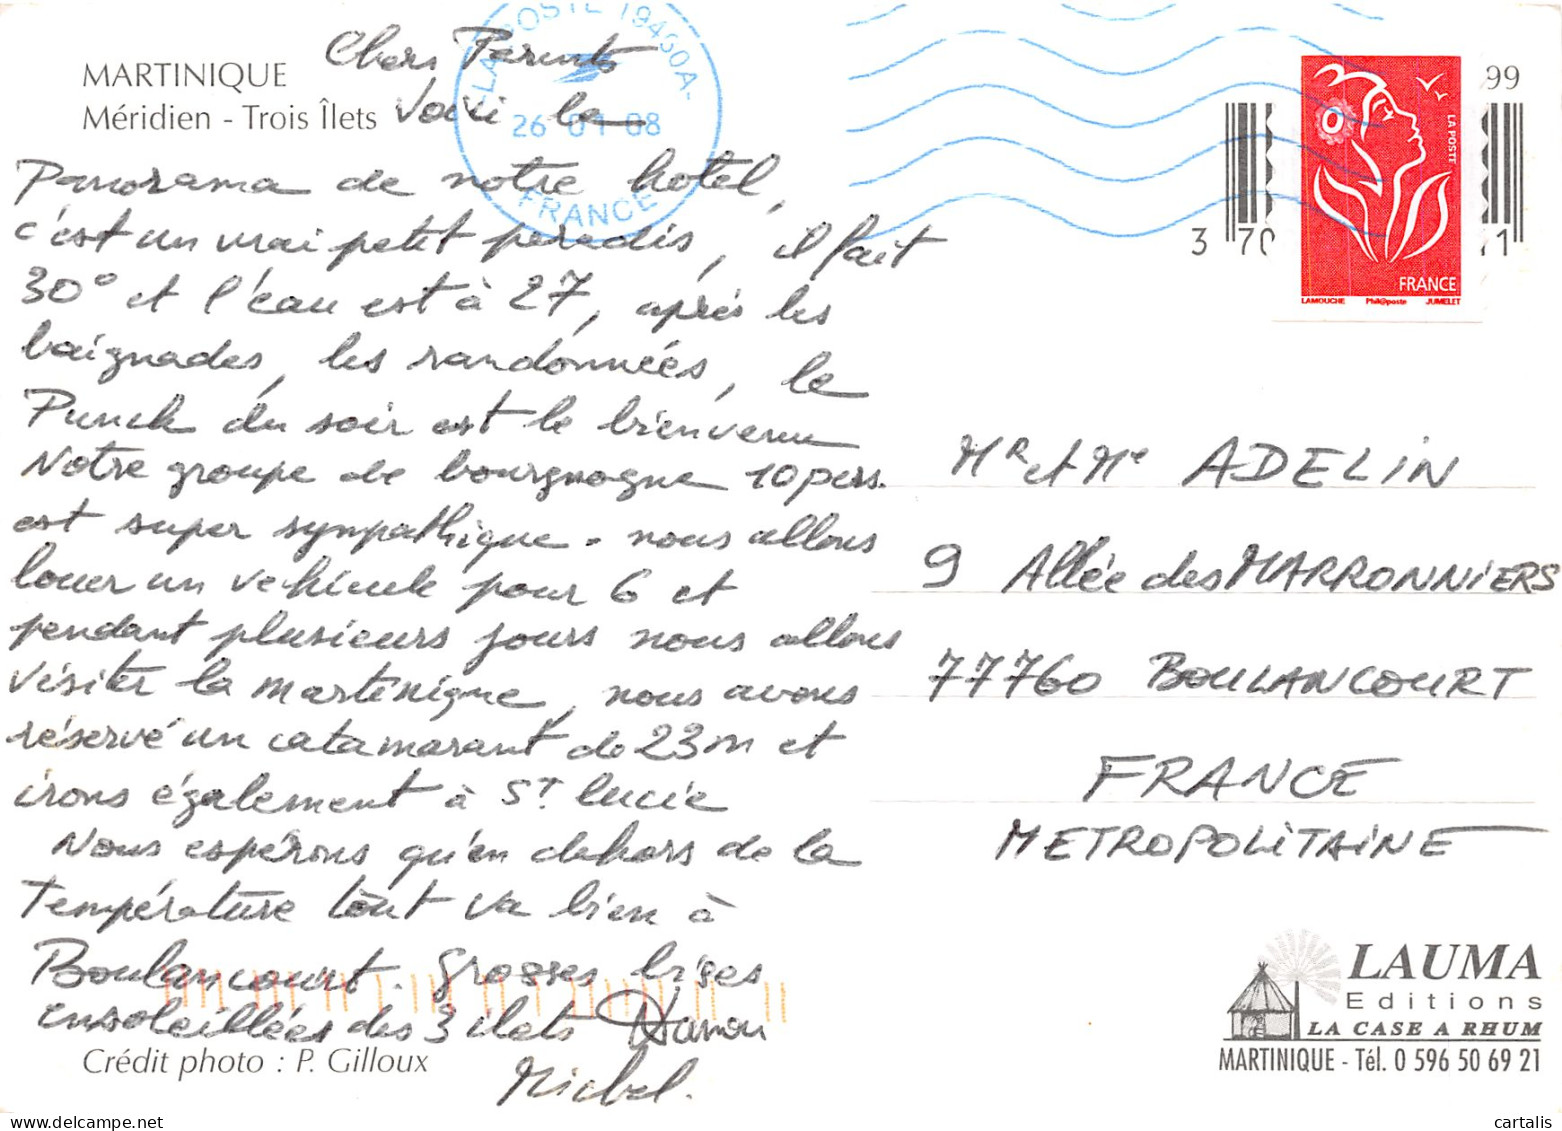 MARTINIQUE
Méridien - Trois Îlets
Chers Parents
Voici le
Panorama de notre hotel,
c'est un vrai petit paradis, il fait
30° et l'eau est à 27, après les
baignades, les randonnées, le
Punch du soir est le bienvenu
Notre groupe de bourgnogne 10 pers.
est super sympathique - nous allons
louer un vehicule pour 6 et
pendant plusieurs jours nous allons
visiter la martinique, nous avons
réservé un catamarant de 23m et
irons également à ST lucie
Nous espérons qu'en dehors de la
Température tout va bien à
Boulancourt. Grosses bises
ensoleillées des 3 ilets
Michel.
Crédit photo : P. Gilloux
LA POSTE 19460A-
26 01 08
FRANCE
99
3 70
1
LA POSTE
FRANCE
LAMOUCHE Phil@poste JUMELET
Mr et Me ADELIN
9 Allée des MARRONNIERS
77760 BOULANCOURT
FRANCE
METROPOLITAINE
LAUMA
Editions
LA CASE A RHUM
MARTINIQUE - Tél. 0 596 50 69 21
delcampe.net
cartalis